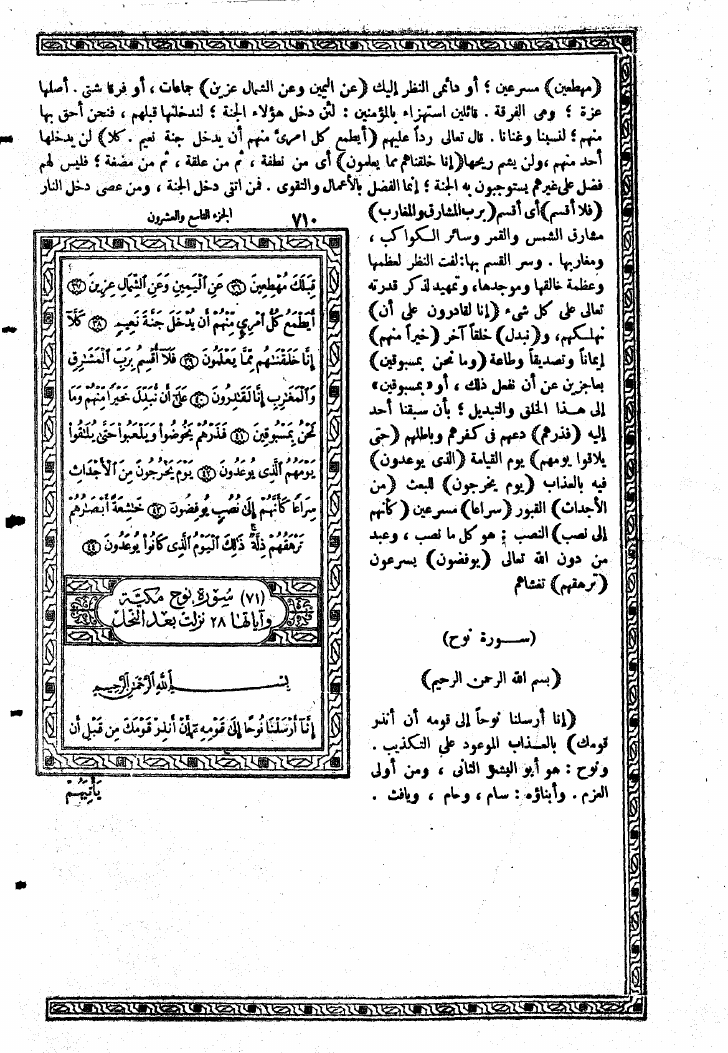 (مهطعين) مسرعين ؛ أو دائمى النظر إليك (عن اليمين وعن الشمال عزين) جماعات ، أو فرقا شتى . أصلها
عزة ؛ وهى الفرقة . قائلين استهزاء بالمؤمنين : لئن دخل هؤلاء الجنة ؛ لندخلنها قبلهم ، فنحن أحق بها
منهم ؛ لنسبنا وغنانا . قال تعالى رداً عليهم (أيطمع كل امرىء منهم أن يدخل جنة نعيم . كلا) لن يدخلها
أحد منهم ، ولن يشم ريحها (إنا خلقناهم مما يعلمون) أى من نطفة ، ثم من علقة ، ثم من مضغة ؛ فليس لهم
فضل على غيرهم يستوجبون به الجنة ؛ إنما الفضل بالأعمال والتقوى . فمن اتقى دخل الجنة ، ومن عصى دخل النار
(فلا أقسم) أى أقسم (برب المشارق والمغارب)
مشارق الشمس والقمر وسائر الكواكب ،
ومغاربها . وسر القسم بها : لفت النظر لعظمها
وعظمة خالقها وموجدها، وتمهيد لذكر قدرته
تعالى على كل شىء (إنا لقادرون على أن)
نهلكهم، و(نبدل) خلقاً آخر (خيراً منهم)
إيماناً وتصديقاً وطاعة (وما نحن بمسبوقين)
بعاجزين عن أن نفعل ذلك ، أو «بمسبوقين»
إلى هذا الخلق والتبديل ؛ بأن سبقنا أحد
إليه (فذرهم) دعهم فى كفرهم وباطلهم (حتى
يلاقوا يومهم) يوم القيامة (الذى يوعدون)
فيه بالعذاب (يوم يخرجون) للبعث (من
الأجداث) القبور (سراعا) مسرعين (كأنهم
إلى نصب) النصب : هو كل ما نصب ، وعبد
من دون الله تعالى (يوفضون) يسرعون
(ترهقهم) تغشاهم
(سـورة نوح)
(بسم الله الرحمن الرحيم)
(إنا أرسلنا نوحاً إلى قومه أن أنذر
قومك) بالعذاب الموعود على التكذيب .
ونوح : هو أبو البشر الثانى ، ومن أولى
العزم . وأبناؤه : سام ، وحام ، ويافث .
٧١٠ الجزء التاسع والعشرون
قِبَلَكَ مُهْطِعِينَ ٣٦ عَنِ ٱلْيَمِينِ وَعَنِ ٱلشِّمَالِ عِزِينَ ٣٧
أَيَطْمَعُ كُلُّ ٱمْرِئٍ مِّنْهُمْ أَن يُدْخَلَ جَنَّةَ نَعِيمٍ ٣٨ كَلَّآ
إِنَّا خَلَقْنَٰهُم مِّمَّا يَعْلَمُونَ ٣٩ فَلَآ أُقْسِمُ بِرَبِّ ٱلْمَشَٰرِقِ
وَٱلْمَغَٰرِبِ إِنَّا لَقَٰدِرُونَ ٤٠ عَلَىٰٓ أَن نُّبَدِّلَ خَيْرًا مِّنْهُمْ وَمَا
نَحْنُ بِمَسْبُوقِينَ ٤١ فَذَرْهُمْ يَخُوضُوا۟ وَيَلْعَبُوا۟ حَتَّىٰ يُلَٰقُوا۟
يَوْمَهُمُ ٱلَّذِى يُوعَدُونَ ٤٢ يَوْمَ يَخْرُجُونَ مِنَ ٱلْأَجْدَاثِ
سِرَاعًا كَأَنَّهُمْ إِلَىٰ نُصُبٍ يُوفِضُونَ ٤٣ خَٰشِعَةً أَبْصَٰرُهُمْ
تَرْهَقُهُمْ ذِلَّةٌ ذَٰلِكَ ٱلْيَوْمُ ٱلَّذِى كَانُوا۟ يُوعَدُونَ ٤٤
(٧١) سورة نوح مكية
وآياتها ٢٨ نزلت بعد النحل
بِسْمِ ٱللَّهِ ٱلرَّحْمَٰنِ ٱلرَّحِيمِ
إِنَّآ أَرْسَلْنَا نُوحًا إِلَىٰ قَوْمِهِۦٓ أَنْ أَنذِرْ قَوْمَكَ مِن قَبْلِ أَن
يَأْتِيَهُمْ